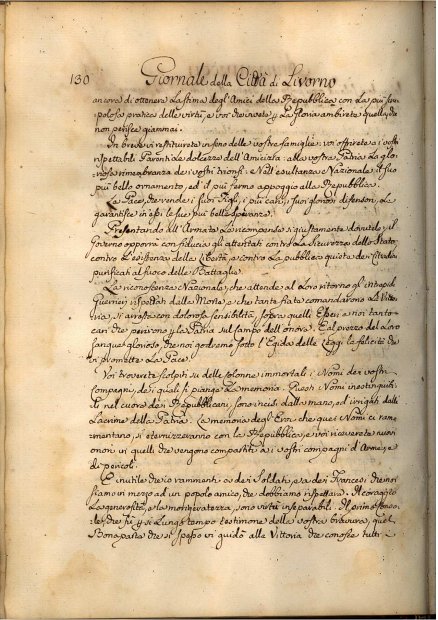 130 Giornale della Città di Livorno
ancora di ottenere la stima degl'Amici della Repubblica con la più scru-
polosa pratica delle virtù, e voi che avete p la gloria ambirete quella, che
non perisce giammai.
In breve vi restituirete in seno delle vostre famiglie: voi offrirete a i vostri
rispettabili Parenti le dolcezze dell'Amicizia: alla vostra Patria la glo-
riosa rimembranza de i vostri trionfi: e Nell'esultanza Nazionale il suo
più bello ornamento, ed il più fermo appoggio alla Repubblica.
La Pace, che rende i suoi Figli, i più cari, i suoi gloriosi difensori, La
garantisce in essi le sue più belle speranze.
Presentando all'Armata la ricompensa sì giustamente dovutale, il
Governo opporrà con fiducia agli attentati contro la sicurezza dello Stato,
contro l'esistenza della libertà, e contro la pubblica quiete dei Cittadini
purificati al fuoco delle Battaglie.
La riconoscenza Nazionale, che attende al loro ritorno gl'intrepidi
Guerrieri rispettati dalla Morte, e che tante fiate comandarono la Vitto-
ria, si arresta con dolorosa sensibilità, sopra quelli Eroi a noi tanto
cari che perirono p la Patria sul campo dell'onore. E al prezzo del loro
sangue glorioso che noi godremo sotto l'Egida delle Leggi la felicità che
ci promette la Pace.
Voi troverete scolpiti su delle colonne immortali i Nomi de i vostri
compagni, de i quali si piange la memoria. Questi Nomi inestinguibi-
li nel cuore de i Repubblicani, sono incisi dalla mano, ed irrigati dalle
Lacrime della Patria. La memoria degl'Eroi, che quei Nomi ci ram-
mentano, si eternizzeranno con la Repubblica, e voi riceverete nuovi
onori in quelli che vengono compartiti a i vostri compagni d'Armi, e
di pericoli.
È inutile che io rammenti a dei Soldati, e a dei Francesi che noi
siamo in mezzo ad un popolo amico, che dobbiamo rispettare. Il coraggio
La generosità, e la morigeratezza, sono virtù inseparabili. Il primo Conso-
le, che fù p sì lungo tempo testimone della vostra bravura, quel
Bonaparte che sì spesso vi guidò alla Vittoria che conosce tutti i